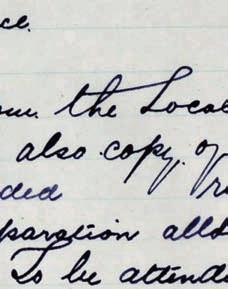 ce.
the Local
also copy of
ded
paration all
To be attend